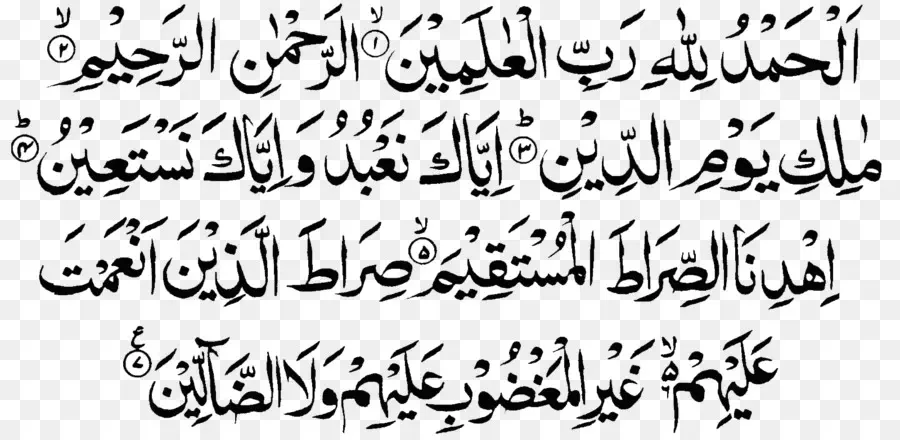 اَلْحَمْدُ لِلّٰهِ رَبِّ الْعٰلَمِيْنَ ۙ﴿۱﴾ الرَّحْمٰنِ الرَّحِيْمِ ۙ﴿۲﴾
مٰلِكِ يَوْمِ الدِّيْنِ ؕ﴿۳﴾ اِيَّاكَ نَعْبُدُ وَ اِيَّاكَ نَسْتَعِيْنُ ؕ﴿۴﴾
اِهْدِنَا الصِّرَاطَ الْمُسْتَقِيْمَ ۙ﴿۵﴾ صِرَاطَ الَّذِيْنَ اَنْعَمْتَ
عَلَيْهِمْ ۙ۵ غَيْرِ الْمَغْضُوْبِ عَلَيْهِمْ وَلَا الضَّآلِّيْنَ ﴿۷﴾ ع